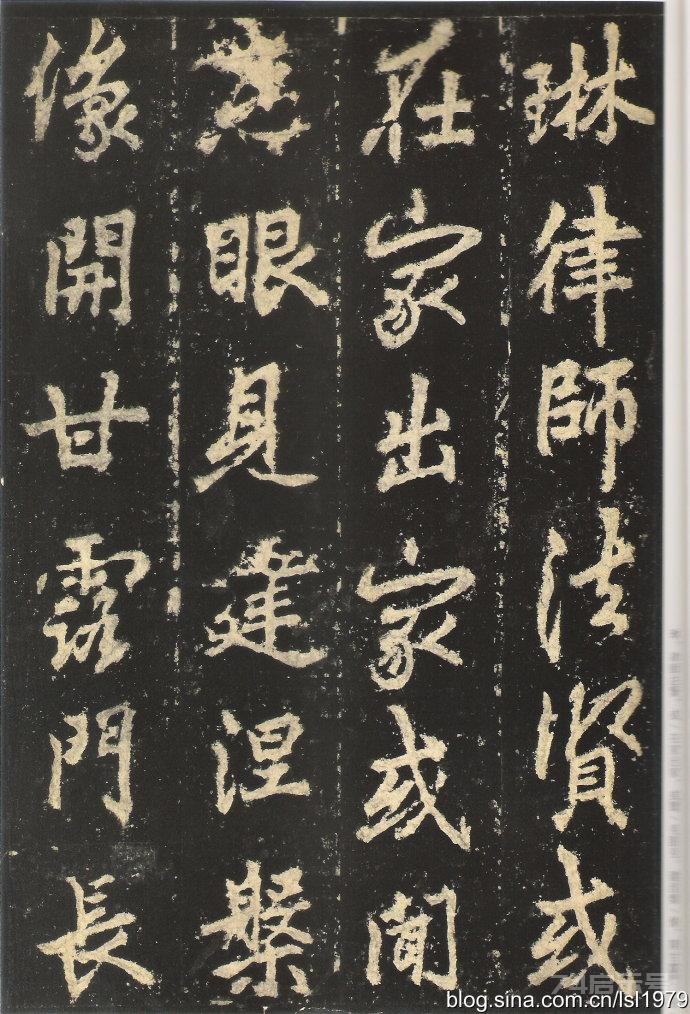 琳律師法賢或
在家出家或聞
意眼見建涅槃
像開甘露門長
blog.sina.com.cn/lsl1979